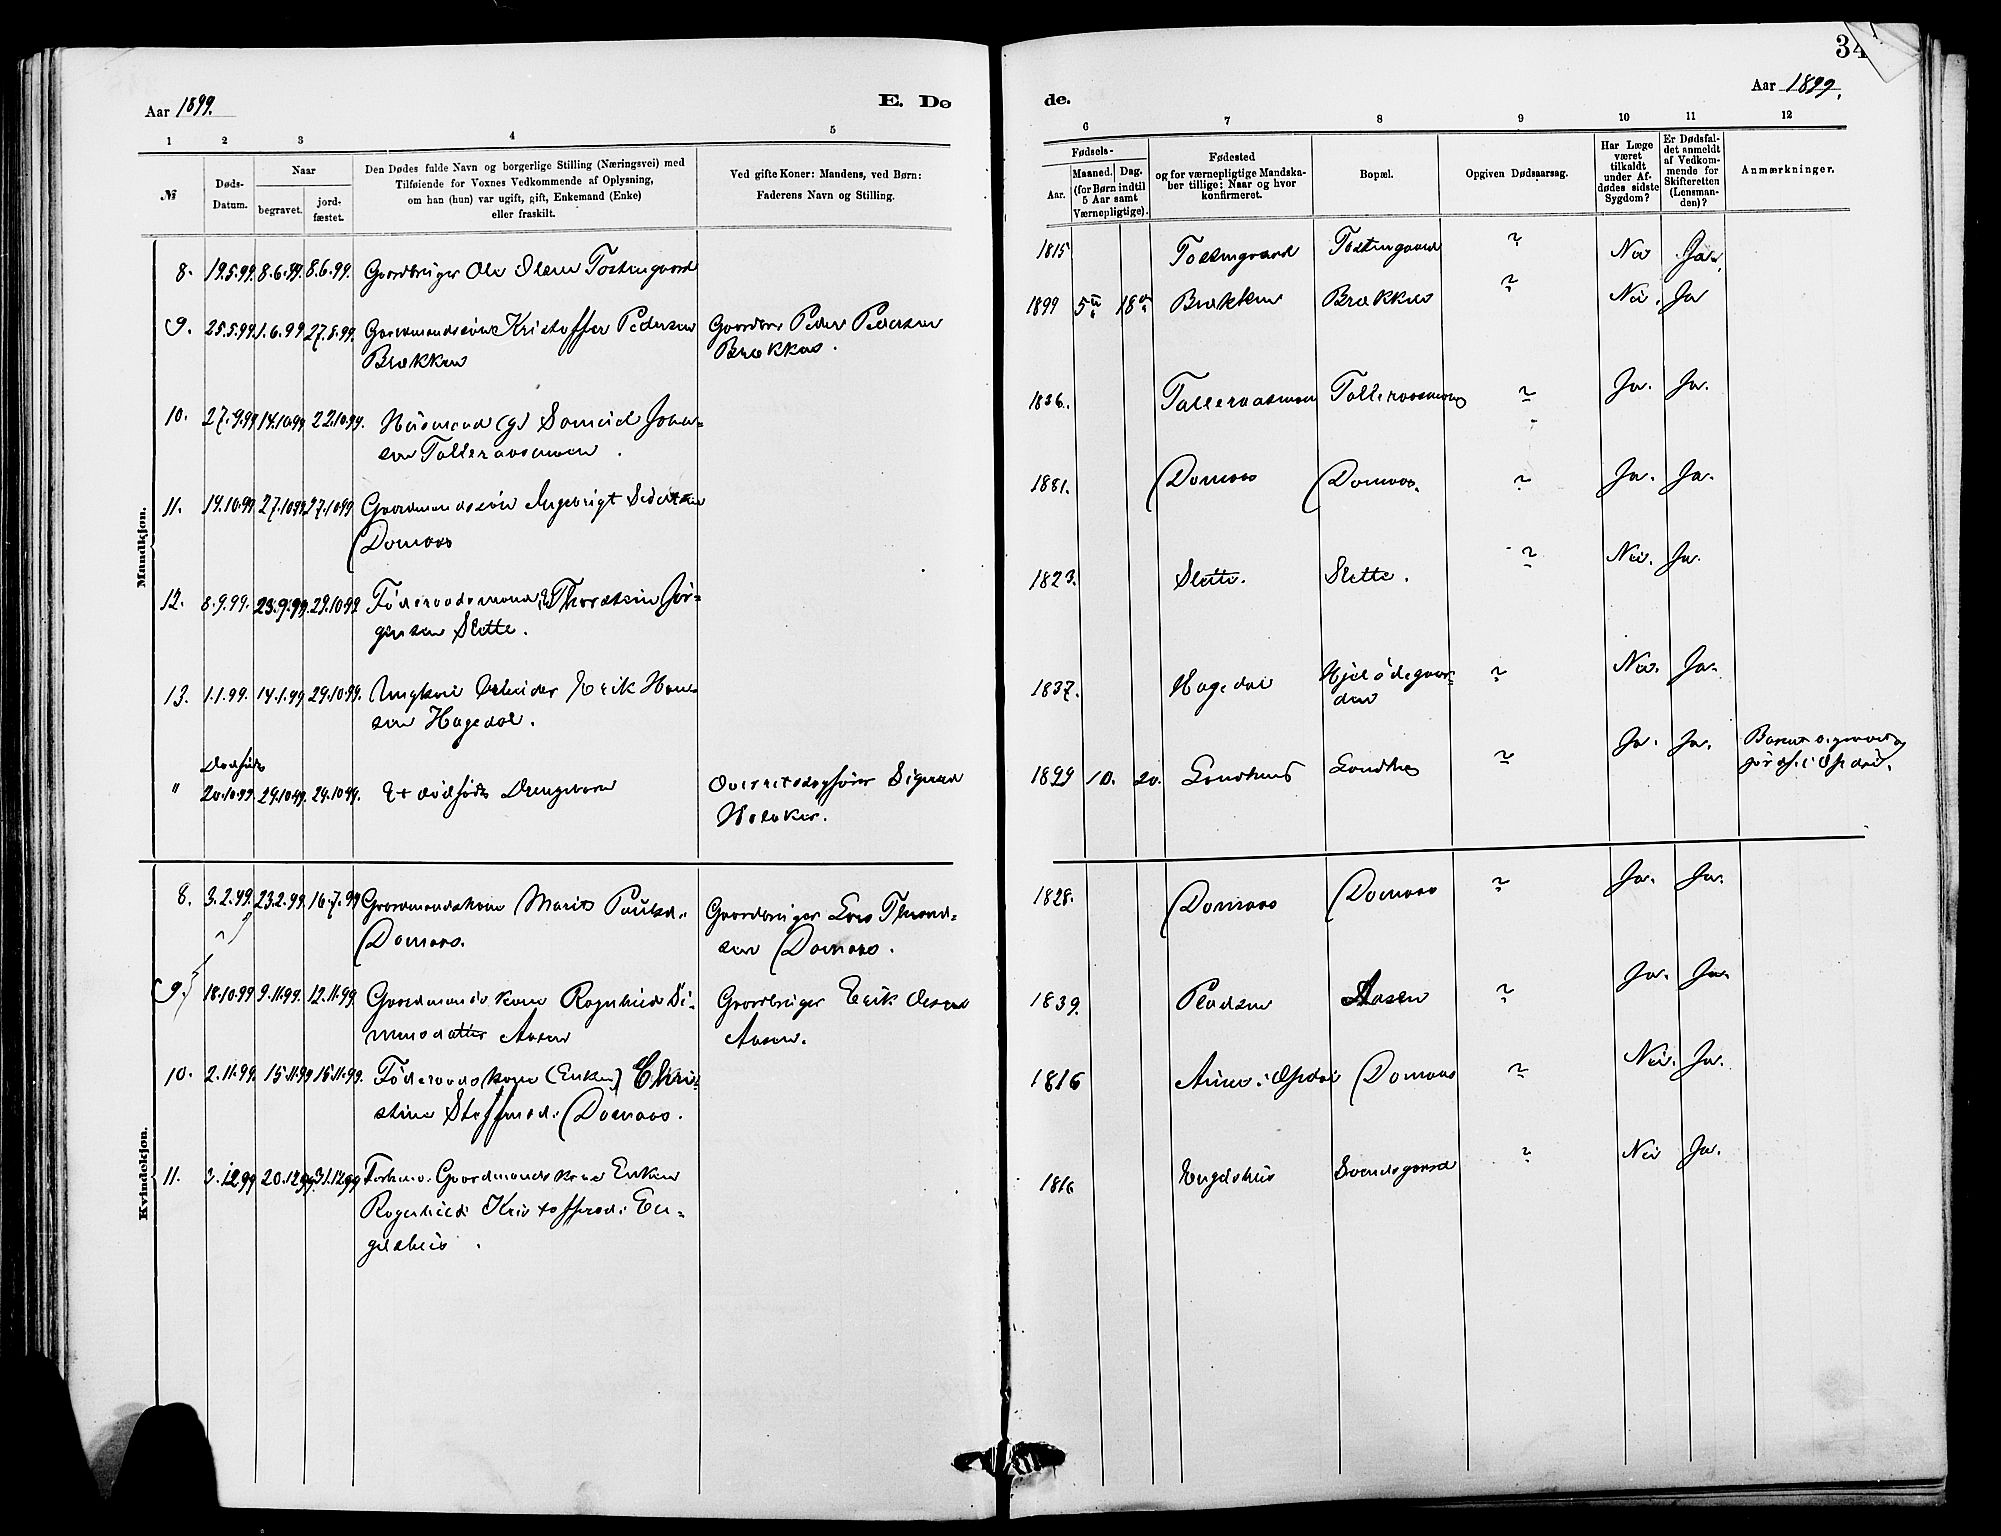 34
Aar 1899.
E. Dø
de.
Aar 1899.
1 2 3 4 5
6 7 8 9 10 11 12
№
Døds-
Datum.
Naar
begravet.
jord-
fæstet.
Den Dødes fulde Navn og borgerlige Stilling (Næringsvei) med
Tilføiende for Voxnes Vedkommende af Oplysning,
om han (hun) var ugift, gift, Enkemand (Enke)
eller fraskilt.
Ved gifte Koner: Mandens, ved Børn:
Faderens Navn og Stilling.
Fødsels-
Aar.
Maaned. Dag.
(for Børn indtil
5 Aar samt
Værnepligtige).
Fødested
og for værnepligtige Mandska-
ber tillige: Naar og hvor
konfirmeret.
Bopæl.
Opgiven Dødsaarsag.
Har Læge
været
tilkaldt
under Af-
dødes sidste
Sygdom?
Er Dødsfal-
det anmeldt
af Vedkom-
mende for
Skifteretten
(Lensman-
den)?
Anmærkninger.
Mandkjøn.
8. 19.5.99. 8.6.99. 8.6.99. Gaardbruger Ole Olsen Tostengaard
1815 Tostengaard Tostengaard ? Nei Ja.
9. 25.5.99. 1.6.99 27.5.99. Gaardmandssøn Kristoffer Pedersen
Brækken
Gaardbr. Peder Pedersen
Brækken.
1899 5 18 Brækken Brækken ? Nei. Ja
10. 27.9.99 14.10.99 22.10.99. Husmand (g) Samuel Johan-
sen Talleraasmoen.
1836. Talleraasmoen Talleraasmoen ? Ja. Ja.
11. 14.10.99 27.10.99 27.10.99 Gaardmandssøn Ingebrigt Sivertsen
Domaas
1881. Domaas Domaas. ? Ja. Ja.
12. 8.9.99. 23.9.99. 29.10.99 Føderaadsmand Thorstein Jør-
gensen Slette.
1823. Slette. Slette. ? Nei. Ja.
13. 1.1.99. 14.1.99 29.10.99. Ungkarl Arbeider Erik Han-
sen Hagedal.
1837. Hagedal Hjelødegaar-
den
? Nei. Ja.
" Dødfødt
20.10.99. 29.10.99. 29.10.99. Et dødfødt Drengebarn
Overretssagfører Sigurd
1899 10. 20. ? Ja. Ja.
Kvindekjøn.
8. 3.2.99. 23.2.99. 16.7.99 Gaardmandskone Marit Paulsd.
Domaas.
Gaardbruger Lars Thoralds-
sen Domaas.
1828. Domaas Domaas ? Ja. Ja.
9. 18.10.99 9.11.99. 12.11.99. Gaardmandskone Ragnhild Si-
mensdatter Aasen
Gaardbruger Erik Olsen
Aasen.
1839. Pladsen Aasen ? Ja. Ja.
10. 2.11.99. 15.11.99 15.11.99. Føderaadskone (Enke) Chri-
stine Steffensd. Domaas.
1816 i Opdal Domaas ? Nei. Ja.
11. 3.12.99 20.12.99. 31.12.99 Forhenv. Gaardmandskone Enken
Ragnhild Kristoffersd. En-
gelshus.
1816 Engelshus Svendsgaard ? Nei Ja.